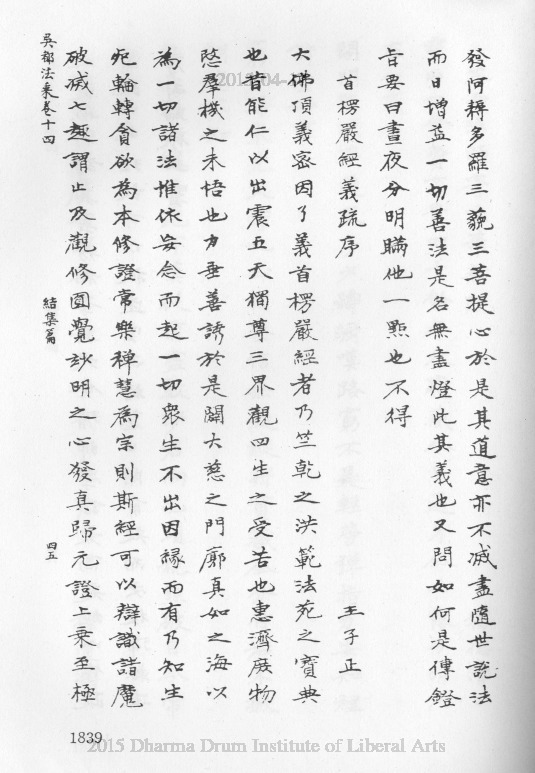 發阿耨多羅三藐三菩提心於是其道意亦不減盡隨世說法
而日增益一切善法是名無盡燈此其義也又問如何是傳鐙
旨要曰晝夜分明瞞他一點也不得
首楞嚴經義疏序 王子正
大佛頂義密因了義首楞嚴經者乃竺乾之洪範法苑之寶典
也昔能仁以出震五天獨尊三界觀四生之受苦也惠濟庶物
愍羣機之未悟也方垂善誘於是闢大慈之門廓真如之海以
為一切諸法惟依妄念而起一切眾生不出因緣而有乃知生
死輪轉貪欲為本修證常樂禪慧為宗則斯經可以辯識諸魔
破滅七趣謂止及觀修圓覺玅明之心發真歸元證上乘至極
吳都法乘卷十四 結集篇 四五
1839
2015-04-
2015 Dharma Drum Institute of Liberal Arts